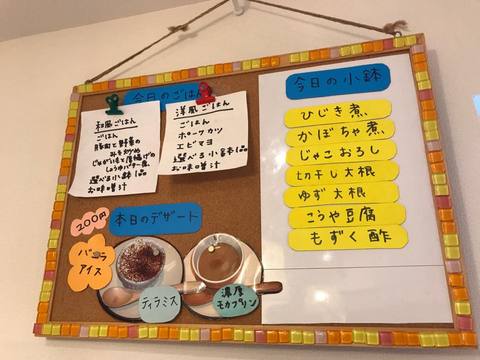 今日のごはん
和風ごはん
ごはん
豚肉と野菜の
みそ炒め
じゃがいもと厚揚げの
しょうゆバター煮
選べる小鉢1品
お味噌汁
洋風ごはん
ごはん
ポークカツ
エビマヨ
選べる小鉢1品
お味噌汁
200円
本日のデザート
バニラ
アイス
ティラミス
濃厚
モカプリン
今日の小鉢
ひじき煮
かぼちゃ煮
じゃこおろし
切干し大根
ゆず大根
こうや豆腐
もずく酢